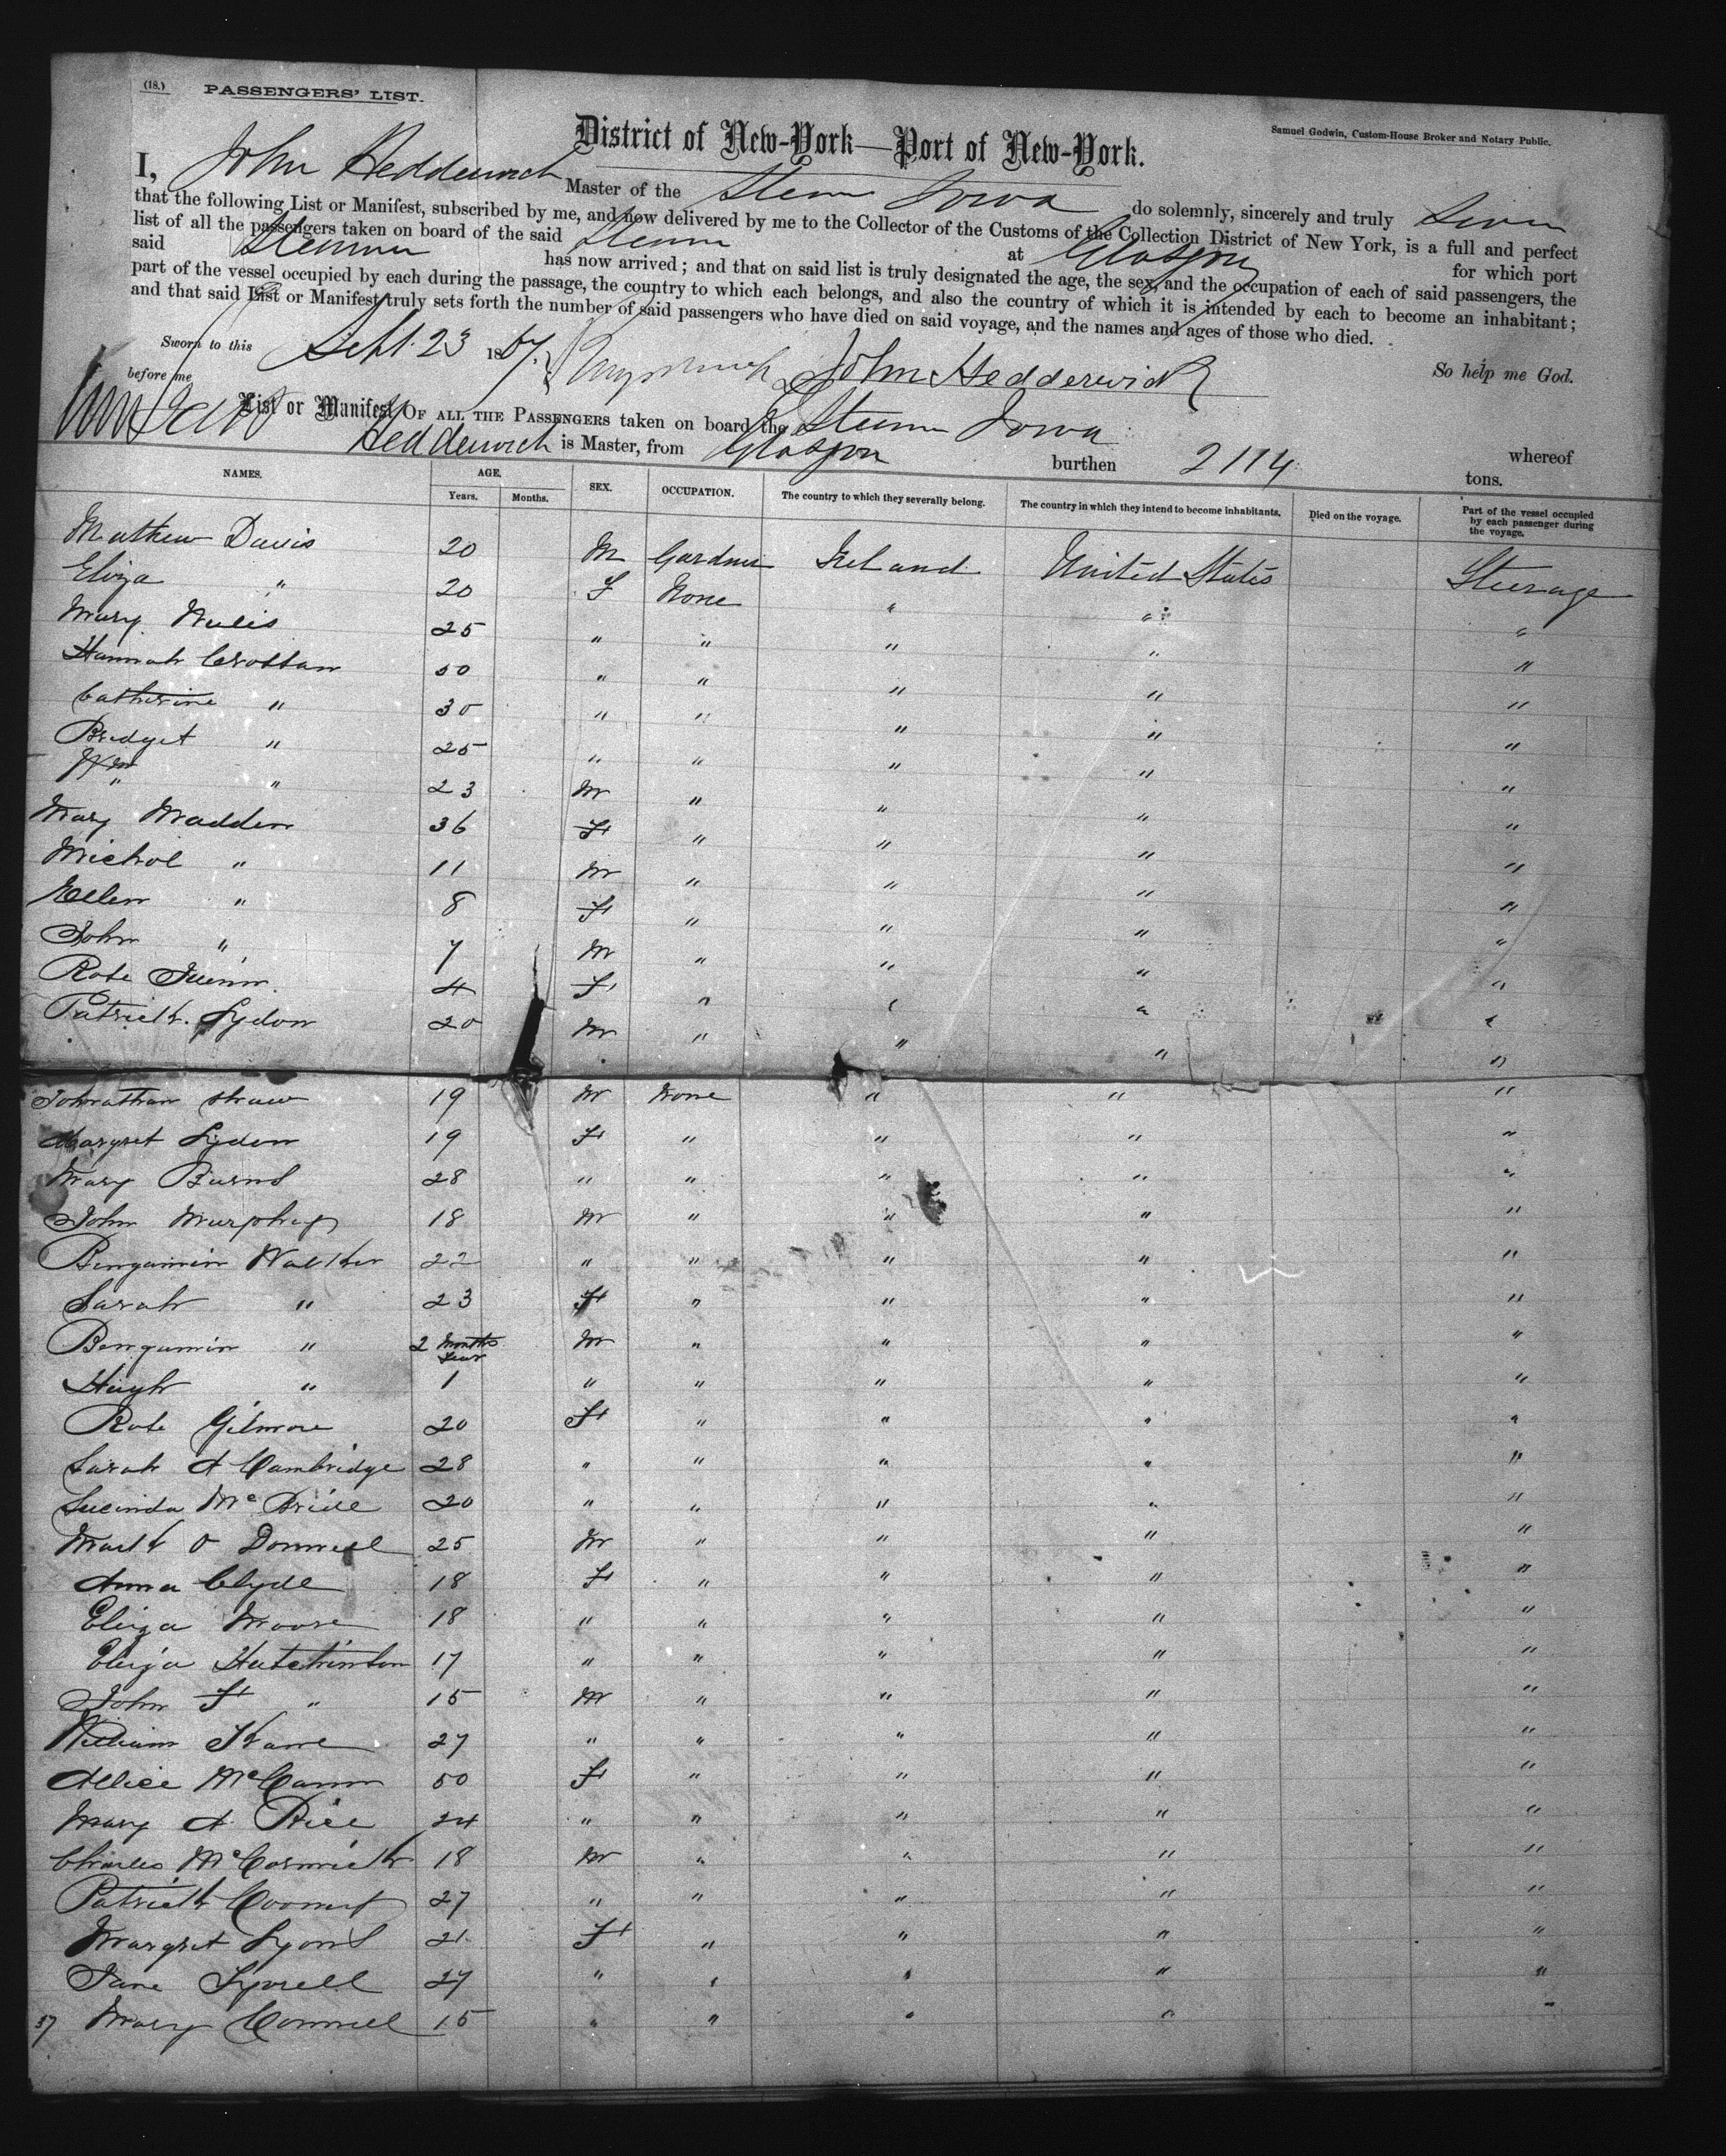 (18.) PASSENGERS' LIST.
Samuel Godwin, Custom-House Broker and Notary Public.
District of New-York—Port of New-York.
I, John Hedderwick Master of the Steamer Iowa do solemnly, sincerely and truly swear
that the following List or Manifest, subscribed by me, and now delivered by me to the Collector of the Customs of the Collection District of New York, is a full and perfect
list of all the passengers taken on board of the said Steamer at Glasgow for which port
said Steamer has now arrived; and that on said list is truly designated the age, the sex, and the occupation of each of said passengers, the
part of the vessel occupied by each during the passage, the country to which each belongs, and also the country of which it is intended by each to become an inhabitant;
and that said List or Manifest truly sets forth the number of said passengers who have died on said voyage, and the names and ages of those who died.
Sworn to this Sept. 23 1867. John Hedderwick So help me God.
before me
List or Manifest OF ALL THE PASSENGERS taken on board the Steamer Iowa whereof
Hedderwick is Master, from Glasgow burthen 2174 tons.
NAMES. AGE. Years. Months. SEX. OCCUPATION. The country to which they severally belong. The country in which they intend to become inhabitants. Died on the voyage. Part of the vessel occupied by each passenger during the voyage.
Mathew Davis 20 M Gardner Ireland United States Steerage
Eliza " 20 F None " " "
Mary 25 " " " " "
Hannah Crottan 50 " " " " "
Catherine " 30 " " " " "
Bridget " 25 " " " " "
" " 23 M " " " "
Mary Madden 36 F " " " "
Michol " 11 M " " " "
Ellen " 8 F " " " "
John " 7 M " " " "
Rose Quinn 4 F " " " "
Patrick Lydon 20 M " " " "
Johnathan Shaw 19 M None " " "
Margret Lydon 19 F " " " "
Mary Burns 28 " " " " "
John Murphy 18 M " " " "
Bengamin Walker 22 " " " " "
Sarah " 23 F " " " "
Bengamin " 2 Months M " " " "
Hugh " 1 Year " " " " "
Rose Gilmore 20 F " " " "
Sarah A Cambridge 28 " " " " "
Lucinda McBride 20 " " " " "
Mark O Donnell 25 M " " " "
Anna Clyde 18 F " " " "
Eliza Moore 18 " " " " "
Eliza Hutchinson 17 " " " " "
John F " 15 M " " " "
William Kane 27 " " " " "
Allice McCann 50 F " " " "
Mary A Rice 24 " " " " "
Charles McCormick 18 M " " " "
Patrick 27 " " " " "
Margret Lyons 21 F " " " "
Jane Tyrrell 27 " " " " "
37 Mary Connell 15 " " " " "